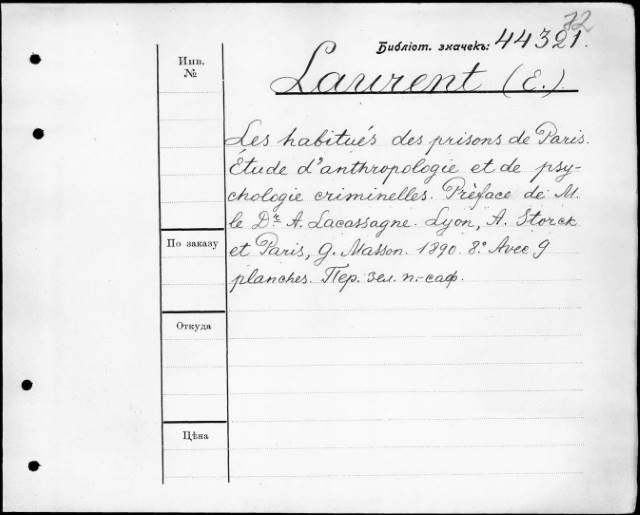 72
Библіот. значекъ: 44321.
Инв.
№
Laurent (E.).
Les habitués des prisons de Paris.
Étude d'anthropologie et de psy-
chologie criminelles. Préface de M.
le Dr A. Lacassagne. Lyon, A. Storck
et Paris, G. Masson. 1890. 8.° Avec 9
planches. Пер. зел. п.-саф.
По заказу
Откуда
Цѣна